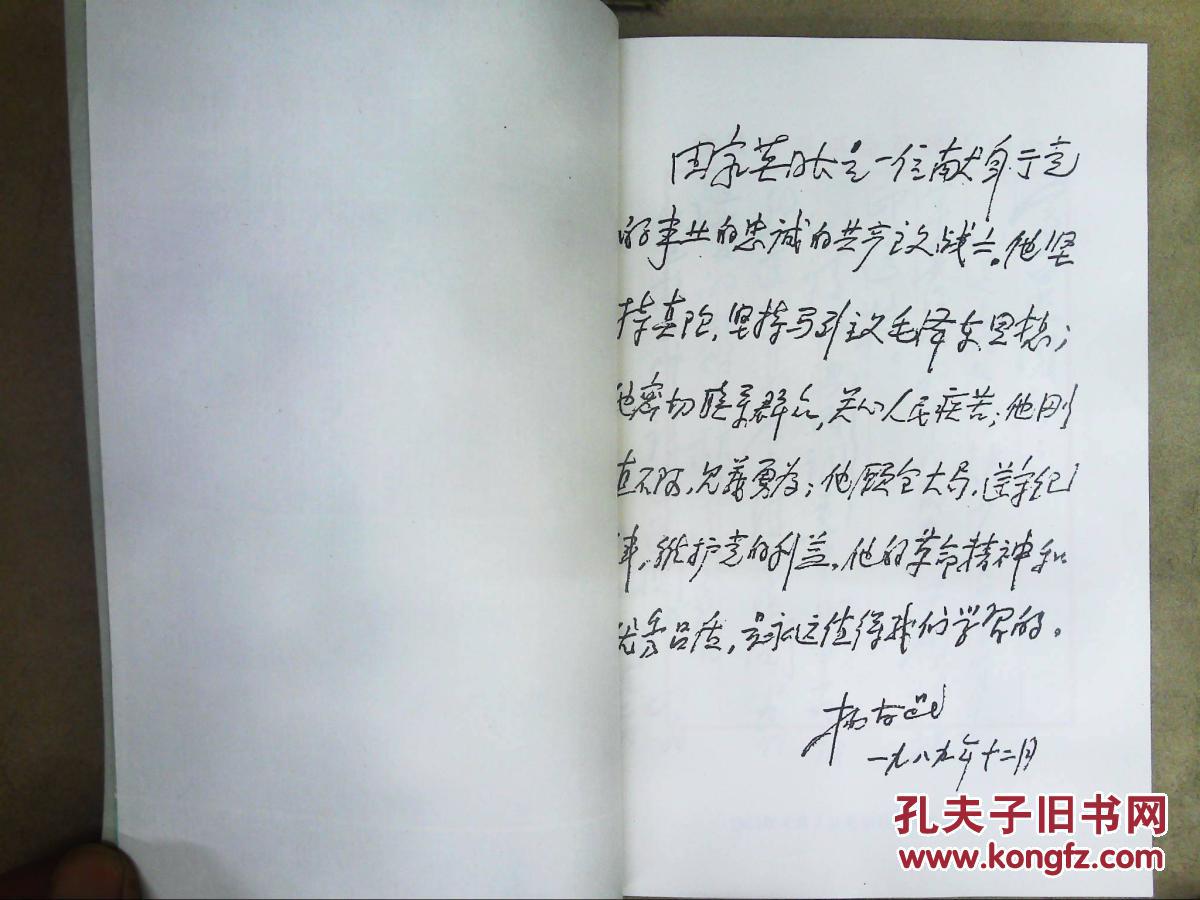 田家英同志是一位献身于党
的事业的忠诚的共产主义战士。他坚
持真理，坚持马列主义毛泽东思想；
他密切联系群众，关心人民疾苦；他刚
直不阿，见义勇为；他顾全大局，遵守纪
律，维护党的利益。他的革命精神和
优秀品质，是永远值得我们学习的。
杨尚昆
一九八九年十二月
孔夫子旧书网
www.kongfz.com